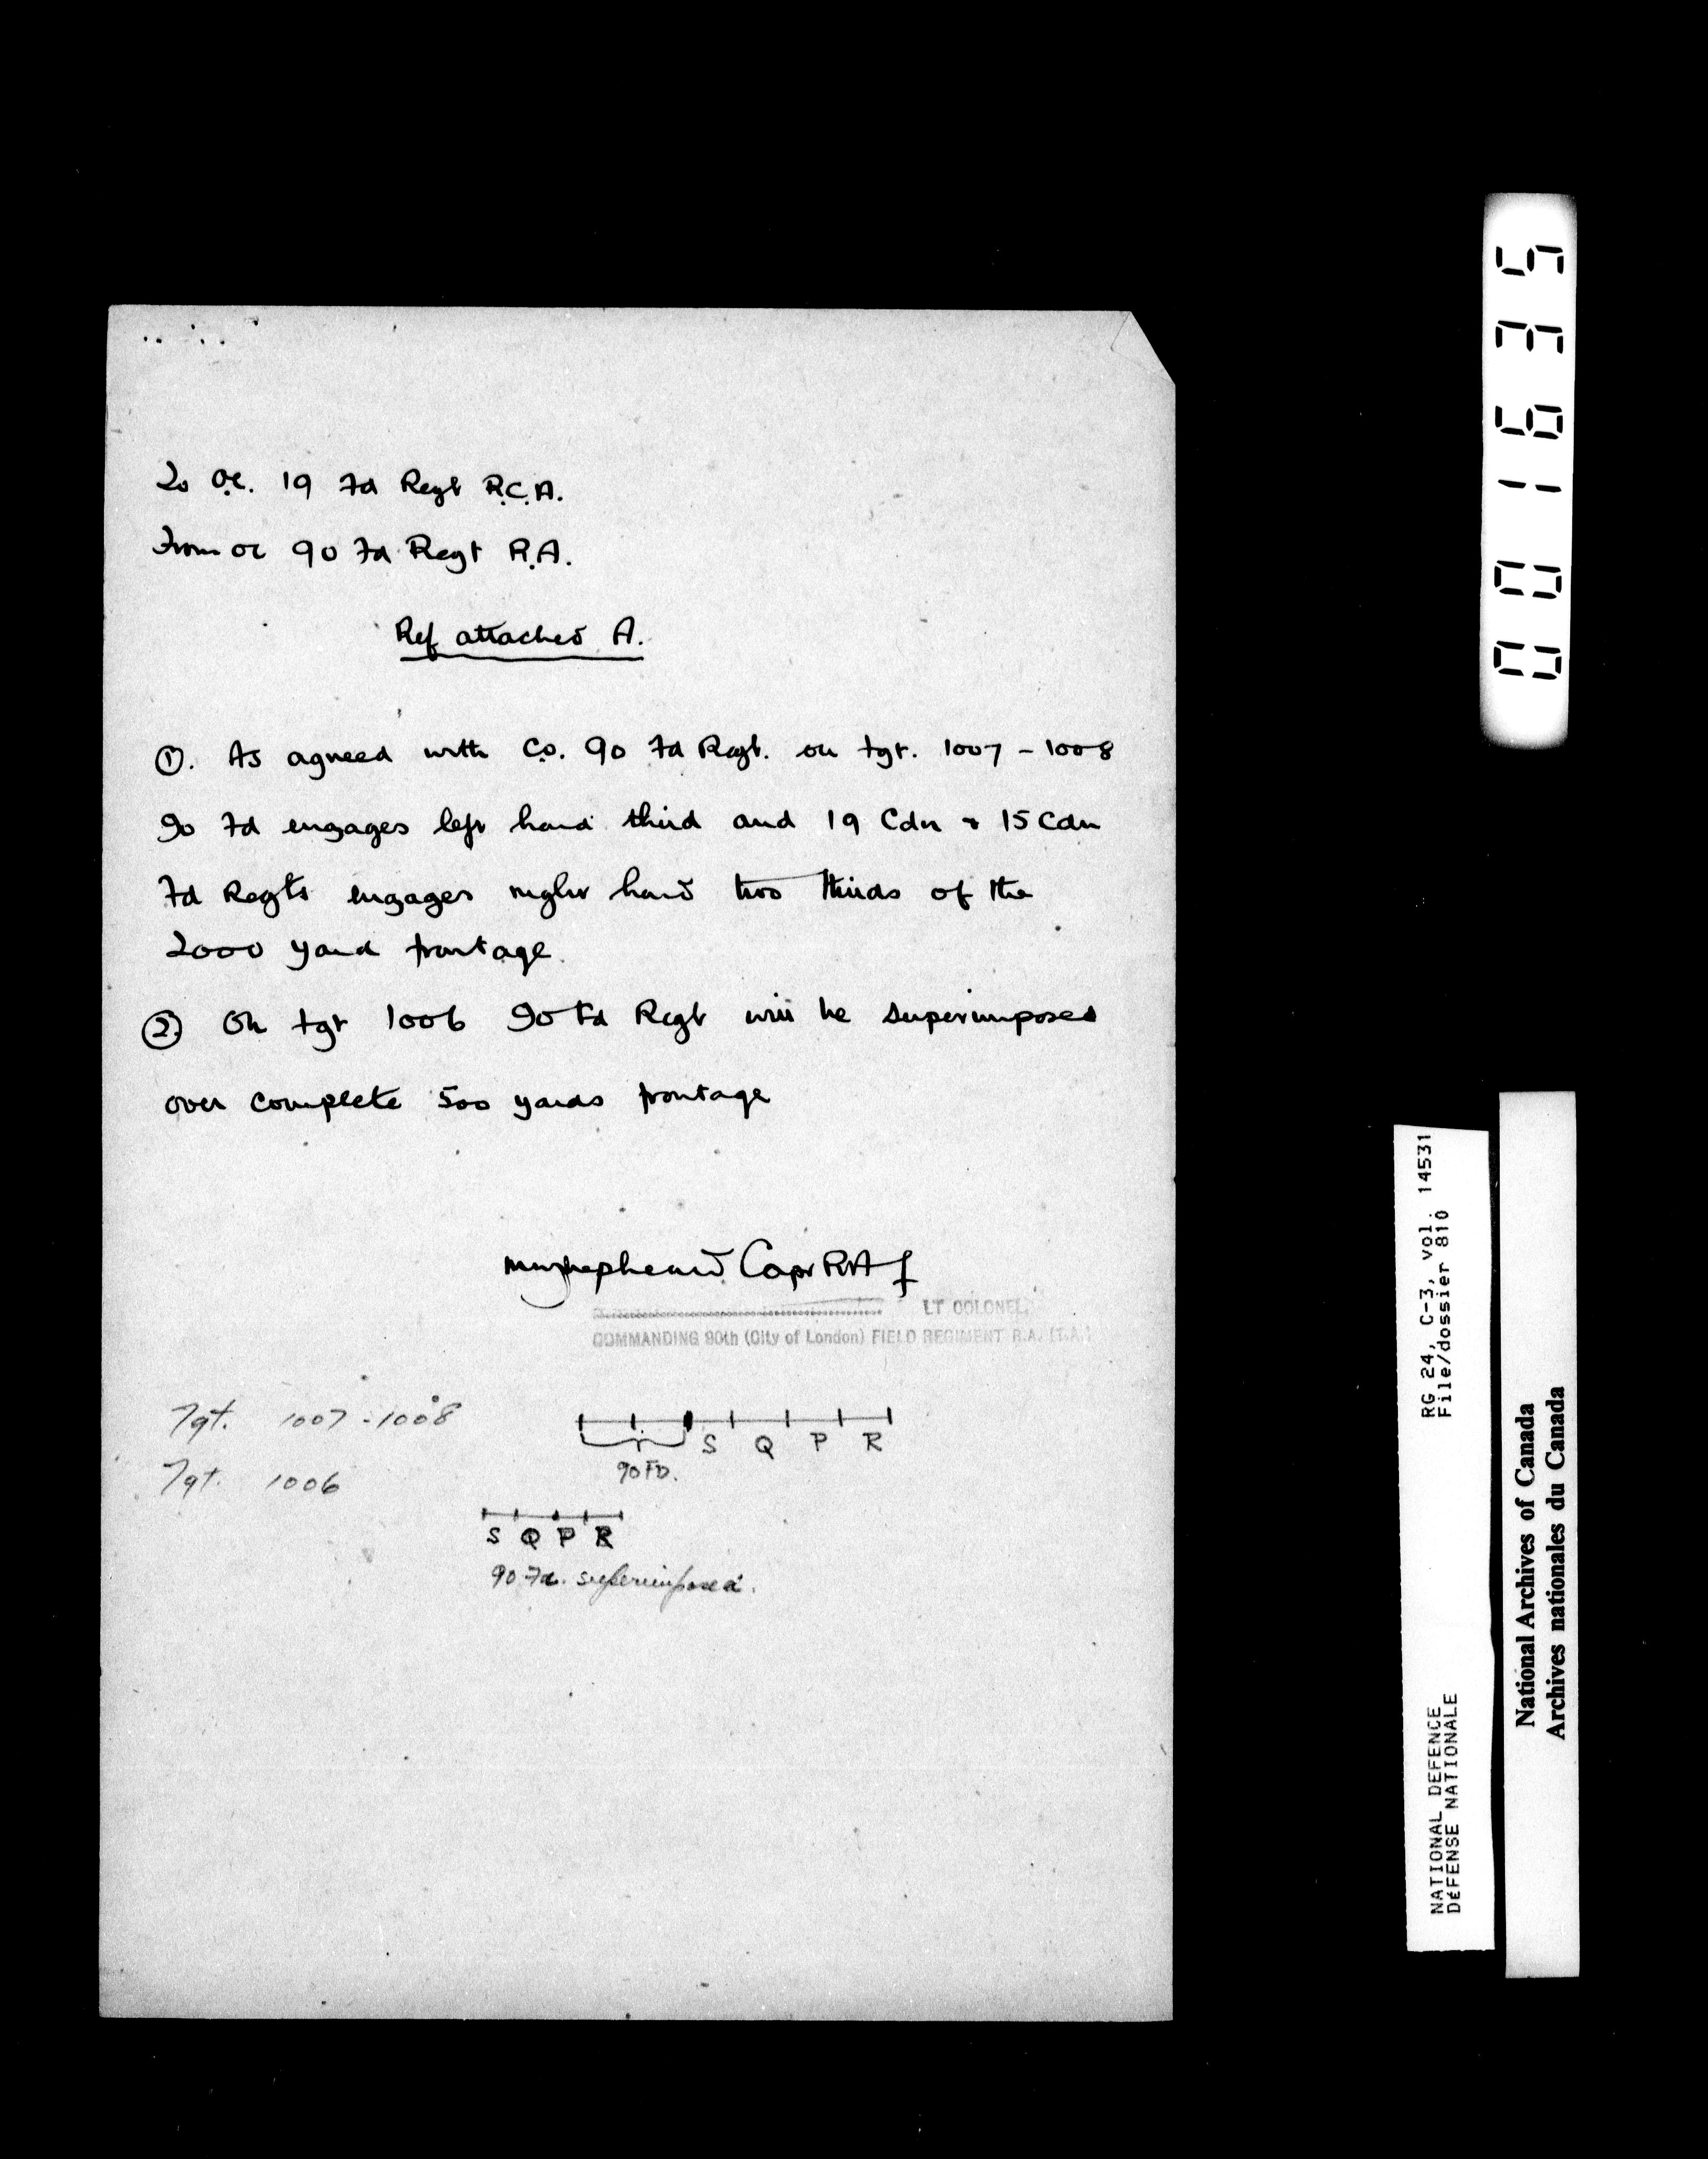 To OC. 19 Fd Regt R.C.A.
From OC 90 Fd Regt R.A.
Ref attached A.
①. As agreed with C.O. 90 Fd Regt. on tgt. 1007 - 1008
90 Fd engages left hand third and 19 Cdn & 15 Cdn
Fd Regts engages right hand two thirds of the
2000 yard frontage.
② On tgt 1006 90 Fd Regt will be superimposed
over complete 500 yards frontage
Capt RA
LT COLONEL.
COMMANDING 90th (City of London) FIELD REGIMENT R.A. (T.A.)
Tgt. 1007 - 1008
S Q P R
90 FD.
Tgt. 1006
S Q P R
90 Fd. superimposed.
001635
RG 24, C-3, vol. 14531
File/dossier 810
NATIONAL DEFENCE
DÉFENSE NATIONALE
National Archives of Canada
Archives nationales du Canada